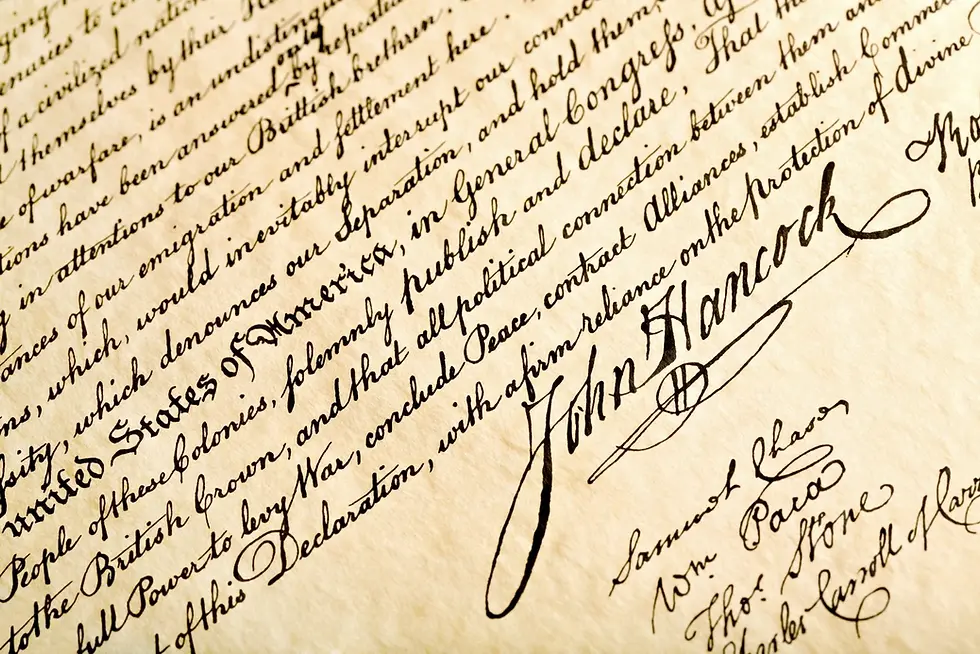 enaries to
of a civilized nation
themselves by their
e of warfare, is an undistingui
only
tions have been answered by repeated
g in attentions to our Brittish brethren.
ances of our emigration and settlement here.
ns, which, would inevitably interrupt our connec
ſsity, which denounces our Separation, and hold them,
united States of America, in General Congreſs,
People of these Colonies, ſolemnly publish and declare, That the
to the British Crown, and that all political connection between them an
full Power to levy War, conclude Peace, contract Alliances, establish Comme
t of this Declaration, with a firm reliance on the protection of divine
John Hancock
Samuel Chase
Wm. Paca
Thos. Stone
Charles Carroll of Carr